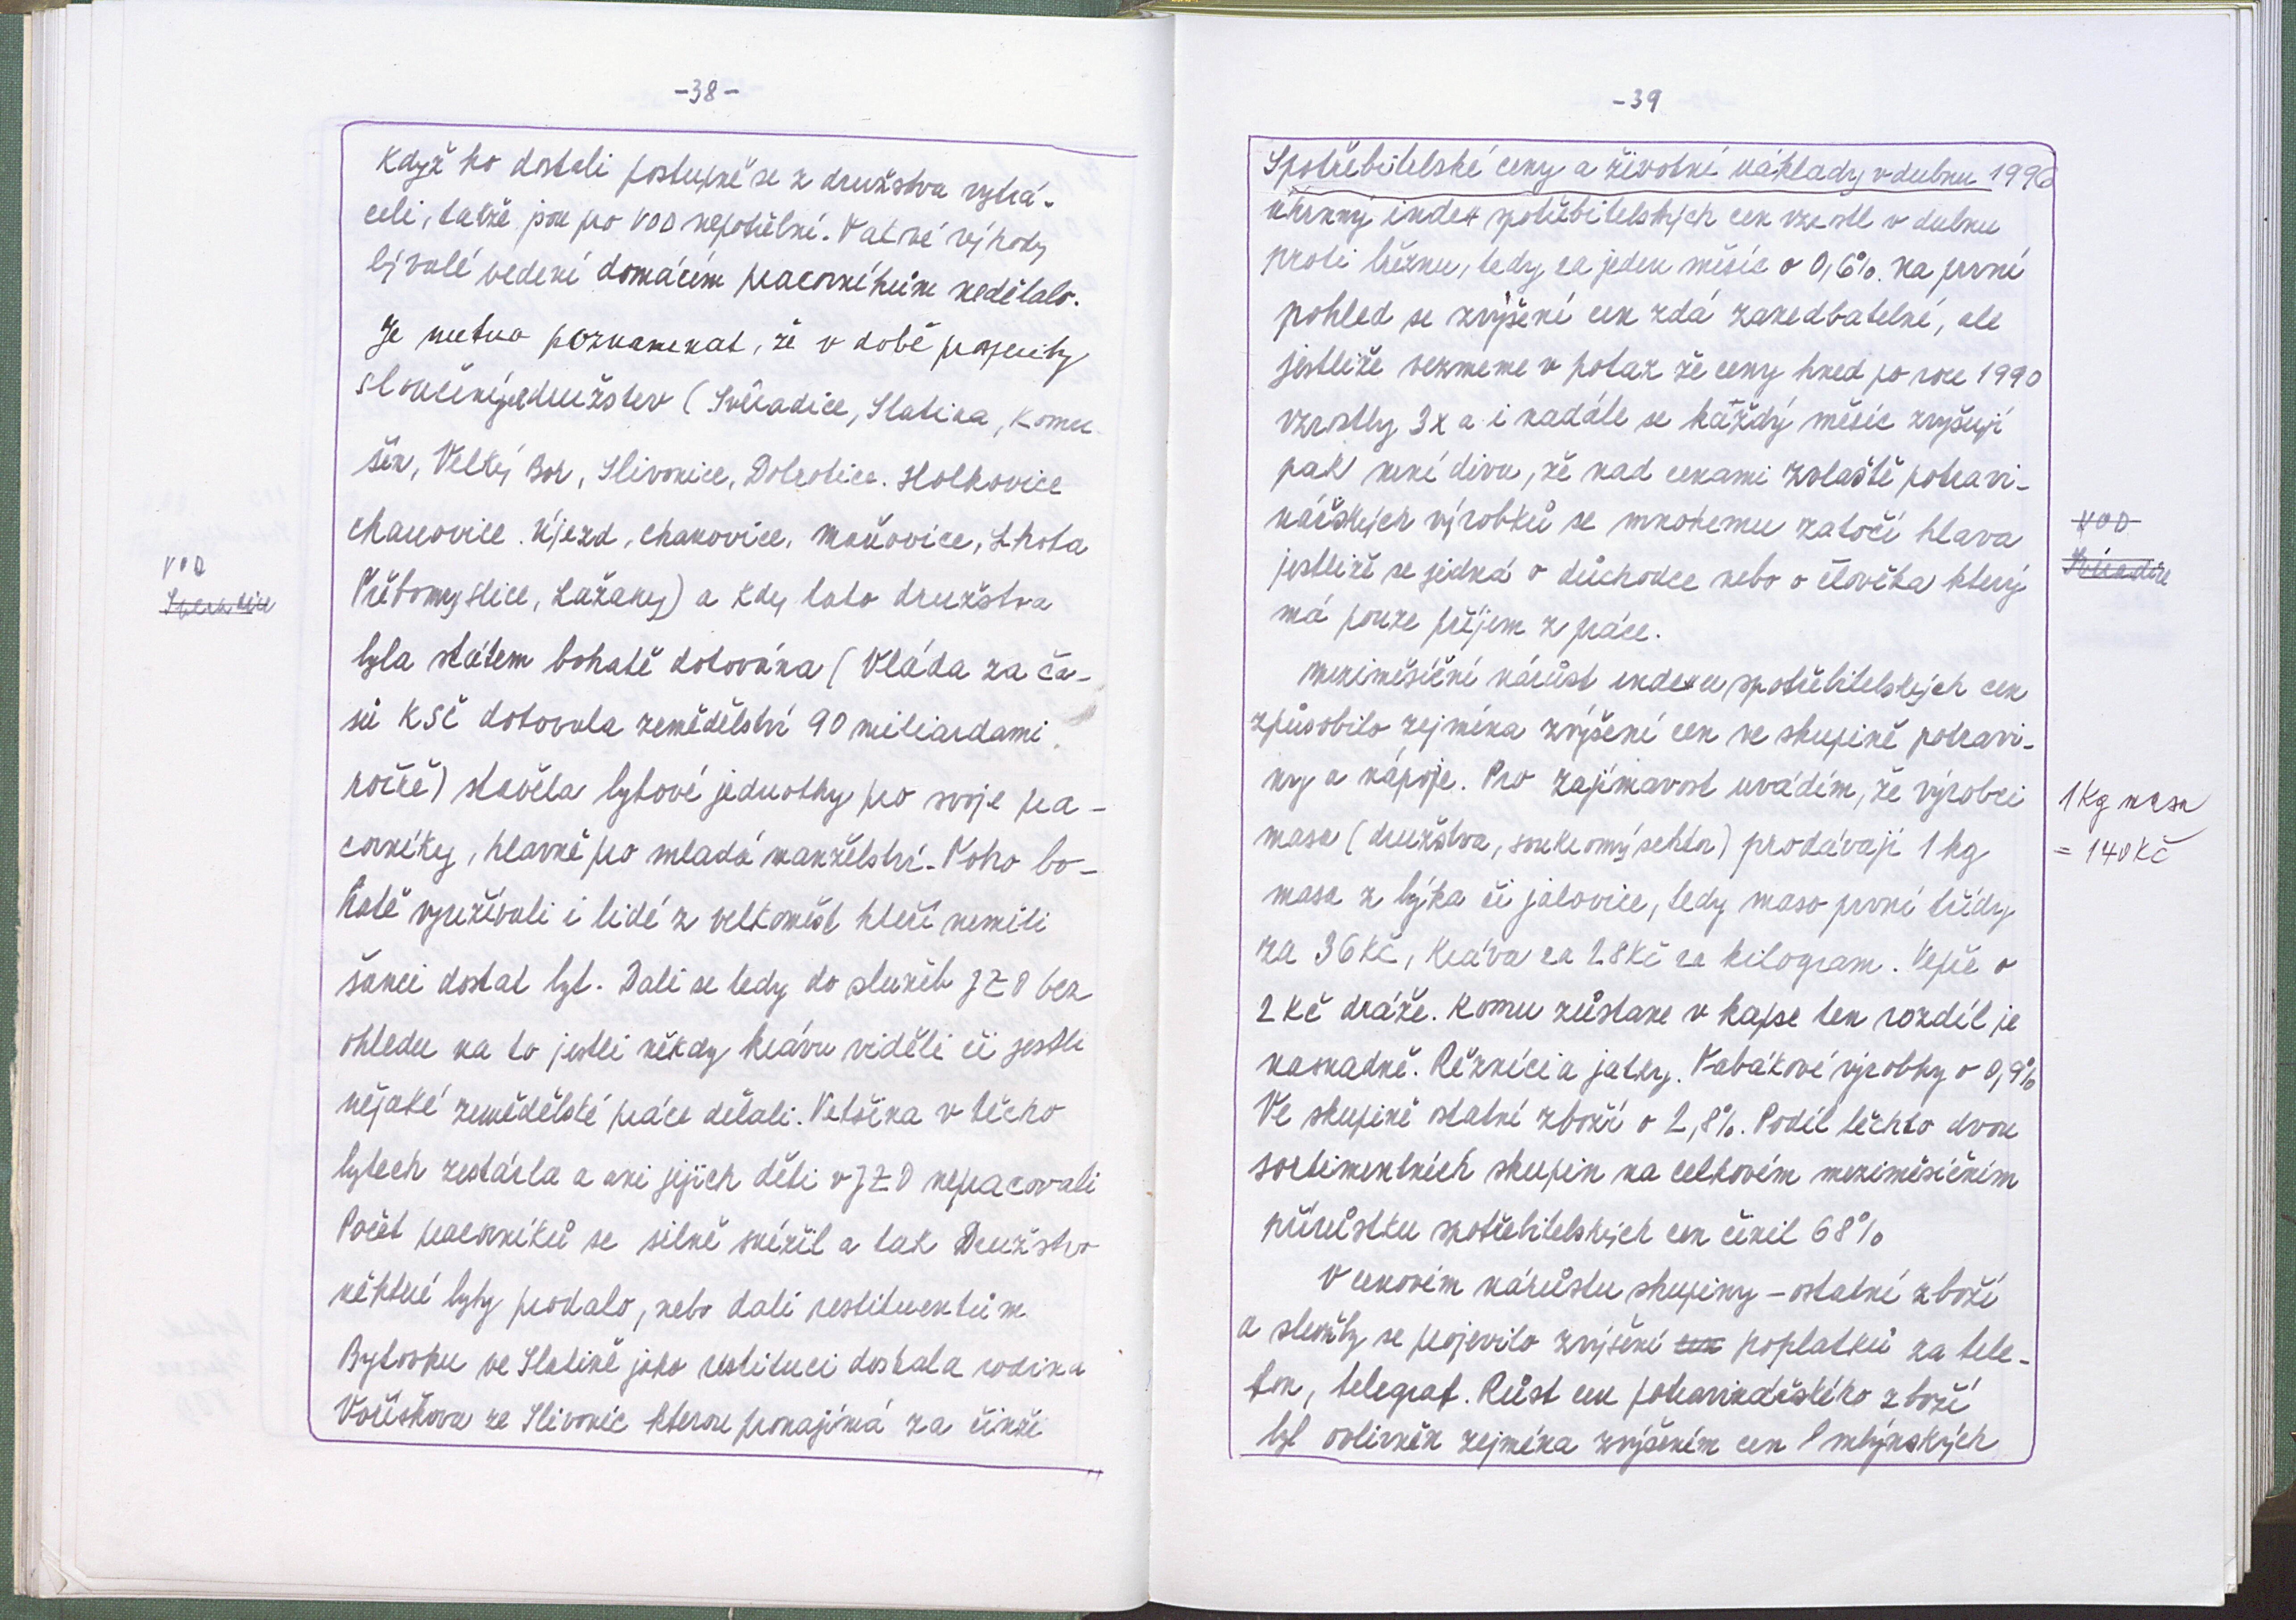 -38-
Když ho dostali postupně se z družstva vytrá-
celi, takže jsou pro VOD nepotřební. Takové výhody
bývalé vedení domácím pracovníkům nedělalo.
Je nutno poznamenat, že v době prosperity
sloučených družstev (Svéradice, Slatina, Komu-
šín, Velký Bor, Slivonice, Dobrotice. Holkovice
Chanovice. Újezd, Chanovice, Mečovice, Lhota
Třebomyslice, Lažany) a kdy tato družstva
byla státem bohatě dotována (Vláda za ča-
sů KSČ dotovala zemědělství 90 miliardami
ročně) stavěla bytové jednotky pro svoje pra-
covníky, hlavně pro mladá manželství. Toho bo-
hatě využívali i lidé z velkoměst kteří neměli
šanci dostat byt. Dali se tedy do služeb JZD bez
ohledu na to jestli někdy krávu viděli či jestli
nějaké zemědělské práce dělali. Vetšina v těcho
bytech zestárla a ani jejich děti v JZD nepracovali
Počet pracovníků se silně snížil a tak Družstvo
některé byty prodalo, nebo dali restituentům
Bytovku ve Slatině jako restituci dostala rodina
Voříškova ze Slivonic kterou pronajímá za činži
VOD
Svéradice
-39
Spotřebitelské ceny a životní náklady v dubnu 1996
úhrnný index spotřebitelských cen vzrostl v dubnu
proti březnu, tedy za jeden měsíc o 0,6%. na první
pohled se zvýšení cen zdá zanedbatelné, ale
jestliže vezmeme v potaz že ceny hned po roce 1990
vzrostly 3x a i nadále se každý měsíc zvyšují
pak není divu, že nad cenami zvlaště potravi-
nářských výrobků se mnohemu zatočí hlava
jestliže se jedná o důchodce nebo o člověka který
má pouze příjem z práce.
Meziměsíční nárůst indexu spotřebitelských cen
způsobilo zejména zvýšení cen ve skupině potravi-
ny a nápoje. Pro zajímavost uvádím, že výrobci
masa (družstva, soukromý sektor) prodávají 1 kg
masa z býka či jalovice, tedy maso první třídy
za 36 Kč, Kráva za 28 Kč za kilogram. Vepře o
2 Kč dráže. Komu zůstane v kapse ten rozdíl je
nasnadně. Řězníci a jatky. Tabákové výrobky o 0,9%
Ve skupině ostatní zboží o 2,8%. Podíl těchto dvou
sortimentních skupin na celkovém meziměsíčním
přírůstku spotřebitelských cen činil 68%
V cenovém nárůstu skupiny – ostatní zboží
a služby se projevilo zvýšení cen poplatků za tele-
fon, telegraf. Růst cen potravinářského zboží
byl ovlivněn zejména zvýšením cen mlýnských
VOD
Svéradice
1 Kg masa
= 140 Kč